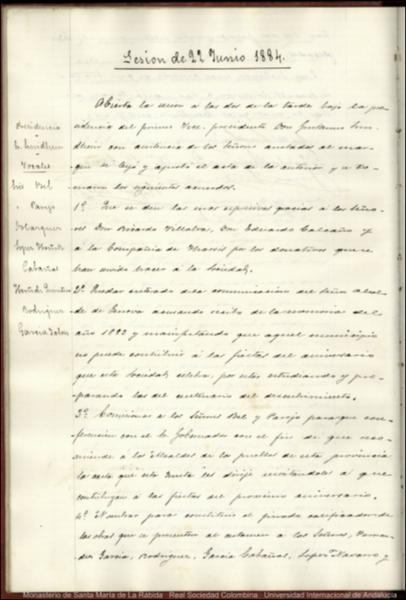 Sesion de 22 Junio 1884.
Presidencia
Vocales
Bel
Parejo
Marquez
Lopez
Cabañas
Rodriguez
Garcia
Abierta la sesion a las dos de la tarde bajo la pre-
sidencia del primer Vice-presidente Don Guillermo Sun-
dheim con asistencia de los Señores anotados al mar-
gen se leyó y aprobó el acta de la anterior y se to-
maron los siguientes acuerdos.
1º Que se den las mas espresivas gracias á los Seño-
res Don Ricardo Villalba, Don Eduardo Calcaño y
á la Compañia de Tharsis por los donativos que se
han hecho á la Sociedad.
2º Quedar enterada de la comunicacion del Señor alcal-
de de Genova acusando recibo de la memoria del
año 1883 y manifestando que aquel municipio
no puede contribuir á las fiestas del aniversario
que esta Sociedad celebra, por estar estudiando y pre-
parando las del centenario del descubrimiento.
3º Comisionar á los Señores Bel y Parejo para que con-
ferencien con el Sr. Gobernador con el fin de que reco-
miende á los Alcaldes de los pueblos de esta provincia
la carta que esta Junta les dirije invitandoles á que
contribuyan á las fiestas del proximo aniversario.
4º Nombrar para constituir el jurado calificador de
las obras que se presenten al certamen á los Señores, Hernan-
dez Garcia, Rodriguez, Garcia Cabañas, Lopez Navarro, y
Monasterio de Santa María de La Rábida . Real Sociedad Colombina . Universidad Internacional de Andalucía